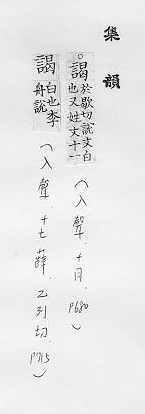 集韻
。謁於歇切說文白也又姓文十一(入聲.十月.P680)
謁白也李舟說(入聲十七薛.乙列切.P715)